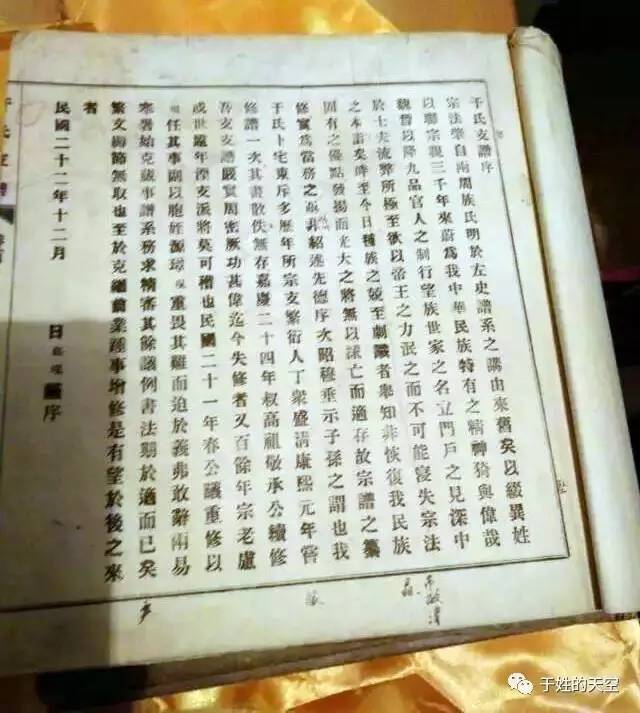 于氏支譜序
宗法肇自南周族氏明於左史譜系之講由來舊矣以綴異姓
以聯宗親三千年來蔚為我中華民族特有之精神猗與偉哉
魏晉以降九品官人之制行望族世家之名立門戶之見深中
於士夫流弊所極至欲以帝王之力泯之而不可能寖失宗法
之本誼矣時至今日種族之競至劇識者舉知非恢復我民族
固有之優點發揚而光大之將無以謀亡而適存故宗譜之纂
修實為當務之亟非紹述先德序次昭穆垂示子孫之謂也我
于氏卜宅東斥多歷年所宗支繁衍人丁眾盛清康熙元年嘗
修譜一次其書散佚無存嘉慶二十四年叔高祖敬承公續修
吾支支譜嚴實周密厥功甚偉迄今失修者又百餘年宗老慮
或世遠年湮支派將莫可稽也民國二十一年春公議重修以
任其事副以胞姪 重畏其難而迫於義弗敢辭兩易
寒暑始克蕆事譜系務求精審其餘讓例書法期於適而已矣
繁文縟節無取也至於克繼前業踵事增修是有望於後之來
者
民國二十二年十二月 日 序
于氏支譜
于姓的天空